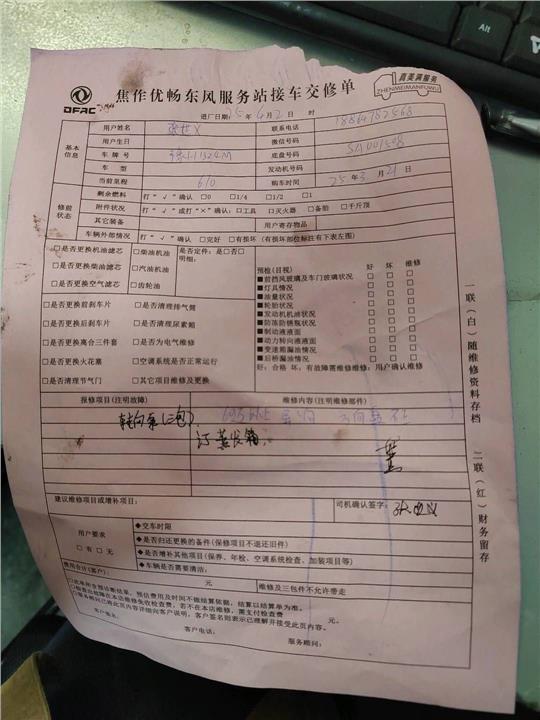 DFAC
焦作优畅东风服务站接车交修单
真美满服务
ZHENMEIMANFUWU
进厂日期: 25年4月2日 时
基本信息
用户姓名
联系电话
用户生日
微信号码
车牌号
底盘号码
车型
发动机号码
当前里程 610
购车时间 25年3月21日
修前状态
剩余燃料 打“√”确认 □0 □1/4 □1/2 □1
附件状况 打“√”或打“×”确认:□工具 □灭火器 □备胎 □千斤顶
其它装备 用户寄存物品
车辆外部情况 打“√”确认 □完好 □有损坏(有损坏部位标注有下表左图)
□是否更换机油滤芯 □柴油机油
□是否更换柴油滤芯 □汽油机油
□是否更换空气滤芯 □齿轮油
是否定件:是□否□
明细:
□是否更换前刹车片 □是否清理排气筒
□是否更换后刹车片 □是否清理尿素箱
□是否更换离合三件套 □是否为电气维修
□是否更换火花塞 □空调系统是否正常运行
□是否清理节气门 □其它项目维修及更换
预检(目视) 好 坏 维修
■前挡风玻璃及车门玻璃状况 □ □ □
■灯具情况 □ □ □
■油量状况 □ □ □
■轮胎状况 □ □ □
■发动机机油状况 □ □ □
■防冻防锈瓶状况 □ □ □
■制动液液面 □ □ □
■动力转向液液面 □ □ □
■变速箱漏油情况 □ □ □
■后桥漏油情况 □ □ □
好:合格 坏:有故障需维修维修:用户确认维修
报修项目(注明故障) 维修内容(注明维修部件)
转向泵(三包)
订蒸发箱.
建议维修项目或增补项目:
司机确认签字:
用户要求
□有□无
◆交车时限
◆是否归还更换的备件(保修项目不退还旧件)
◆是否增补其他项目(保养、年检、空调系统检查、加装项目等)
◆车辆是否需要清洁:
费用合计(客户): 元 维修及三包件不允许带走
□此单所含预诊断结果,预估费用及时间不做结算依据,结算以结算单为准。
□检查出故障在本店维修免收检查费,若不在本店维修,需支付检查费 元。
□服务顾问已将此页内容详细向客户说明,客户签名则表示已理解并接受此页内容。
客户签名:
客户电话:
服务顾问:
一联(白)随维修资料存档
二联(红)财务留存